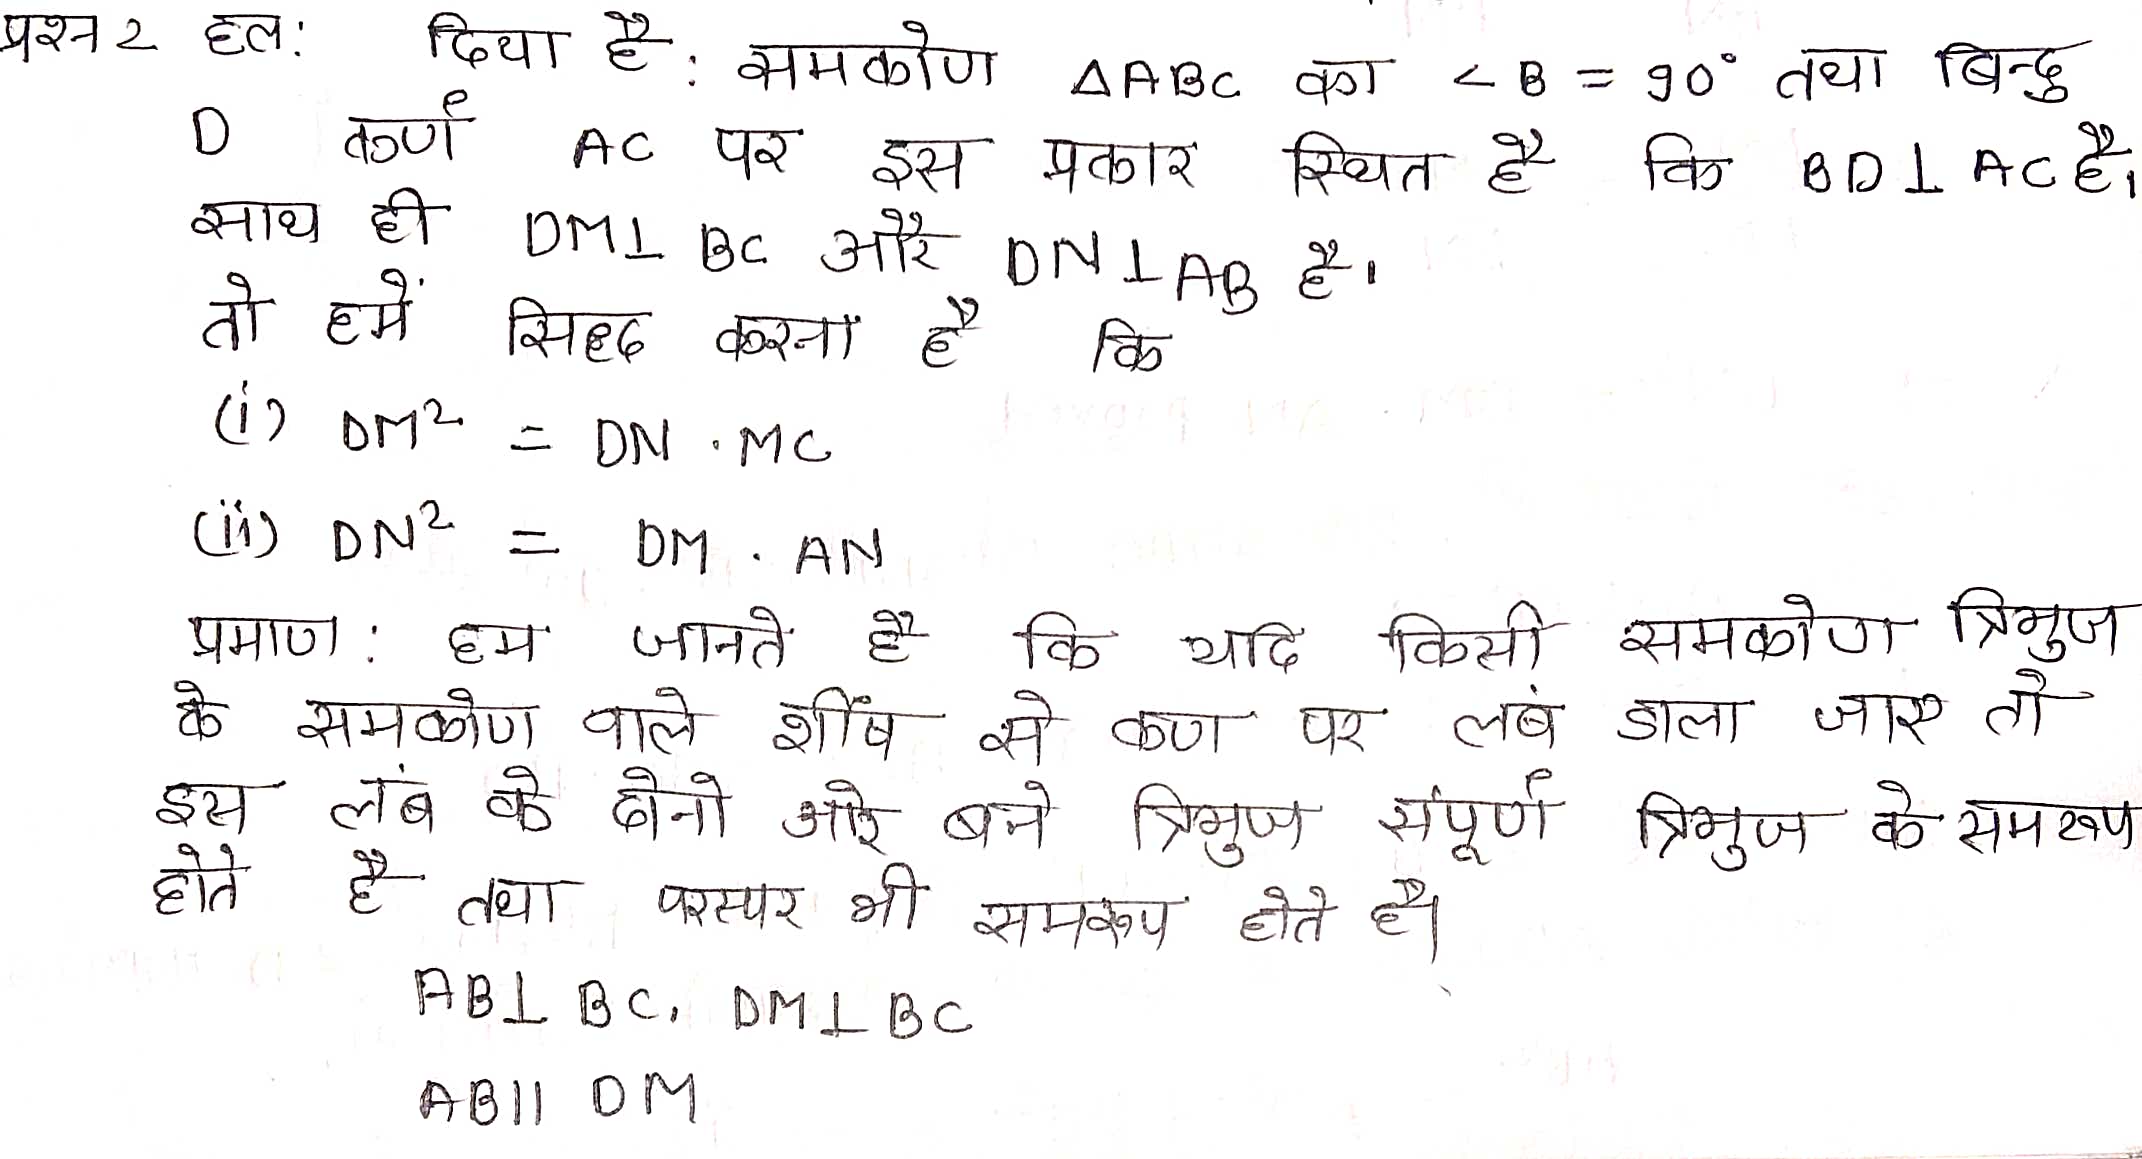 प्रश्न 2 हल: दिया है: समकोण △ABC का <B = 90° तथा बिन्दु
D कर्ण AC पर इस प्रकार स्थित है कि BD⊥AC है।
साथ ही DM⊥ BC और DN⊥AB है।
तो हमें सिद्द करना है कि
(i) DM² = DN . MC
(ii) DN² = DM . AN
प्रमाण: हम जानते है कि यदि किसी समकोण त्रिभुज
के समकोण वाले शींष से कण पर लबं डाला जाए तो
इस लंब के दोनो ओर बने त्रिभुज संपूर्ण त्रिभुज के समरूप
होते है तथा परस्पर भी समरूप होते है।
AB⊥ BC, DM⊥BC
AB|| DM